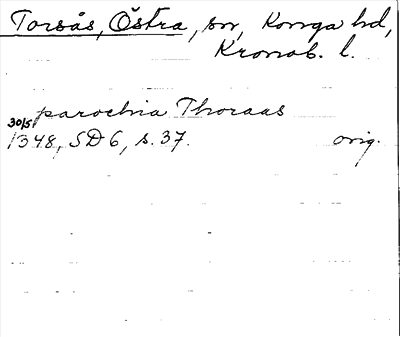 Torsås, Östra, sn, Konga hd,
Kronob. l.
parochia Thoraas
30/5
1348, SD 6, s. 37. orig.